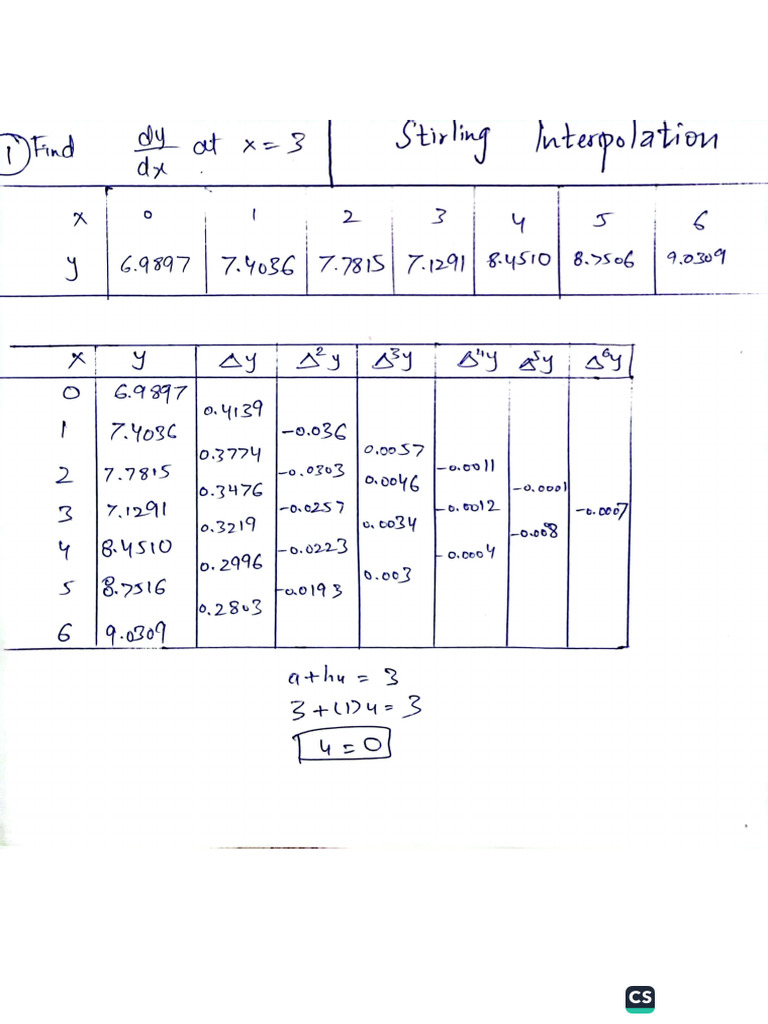 ① Find dy/dx at x = 3 | Stirling Interpolation
x 0 1 2 3 4 5 6
y 6.9897 7.4036 7.7815 7.1291 8.4510 8.7506 9.0309
x y Δy Δ²y Δ³y Δ⁴y Δ⁵y Δ⁶y
0 6.9897
0.4139
1 7.4036 -0.036
0.3774 0.0057
2 7.7815 -0.0303 -0.0011
0.3476 0.0046 -0.0001
3 7.1291 -0.0257 -0.0012 -0.0007
0.3219 0.0034 -0.008
4 8.4510 -0.0223 -0.0004
0.2996 0.003
5 8.7516 -0.0193
0.2803
6 9.0309
a+hu = 3
3+(1)u = 3
u = 0
CS